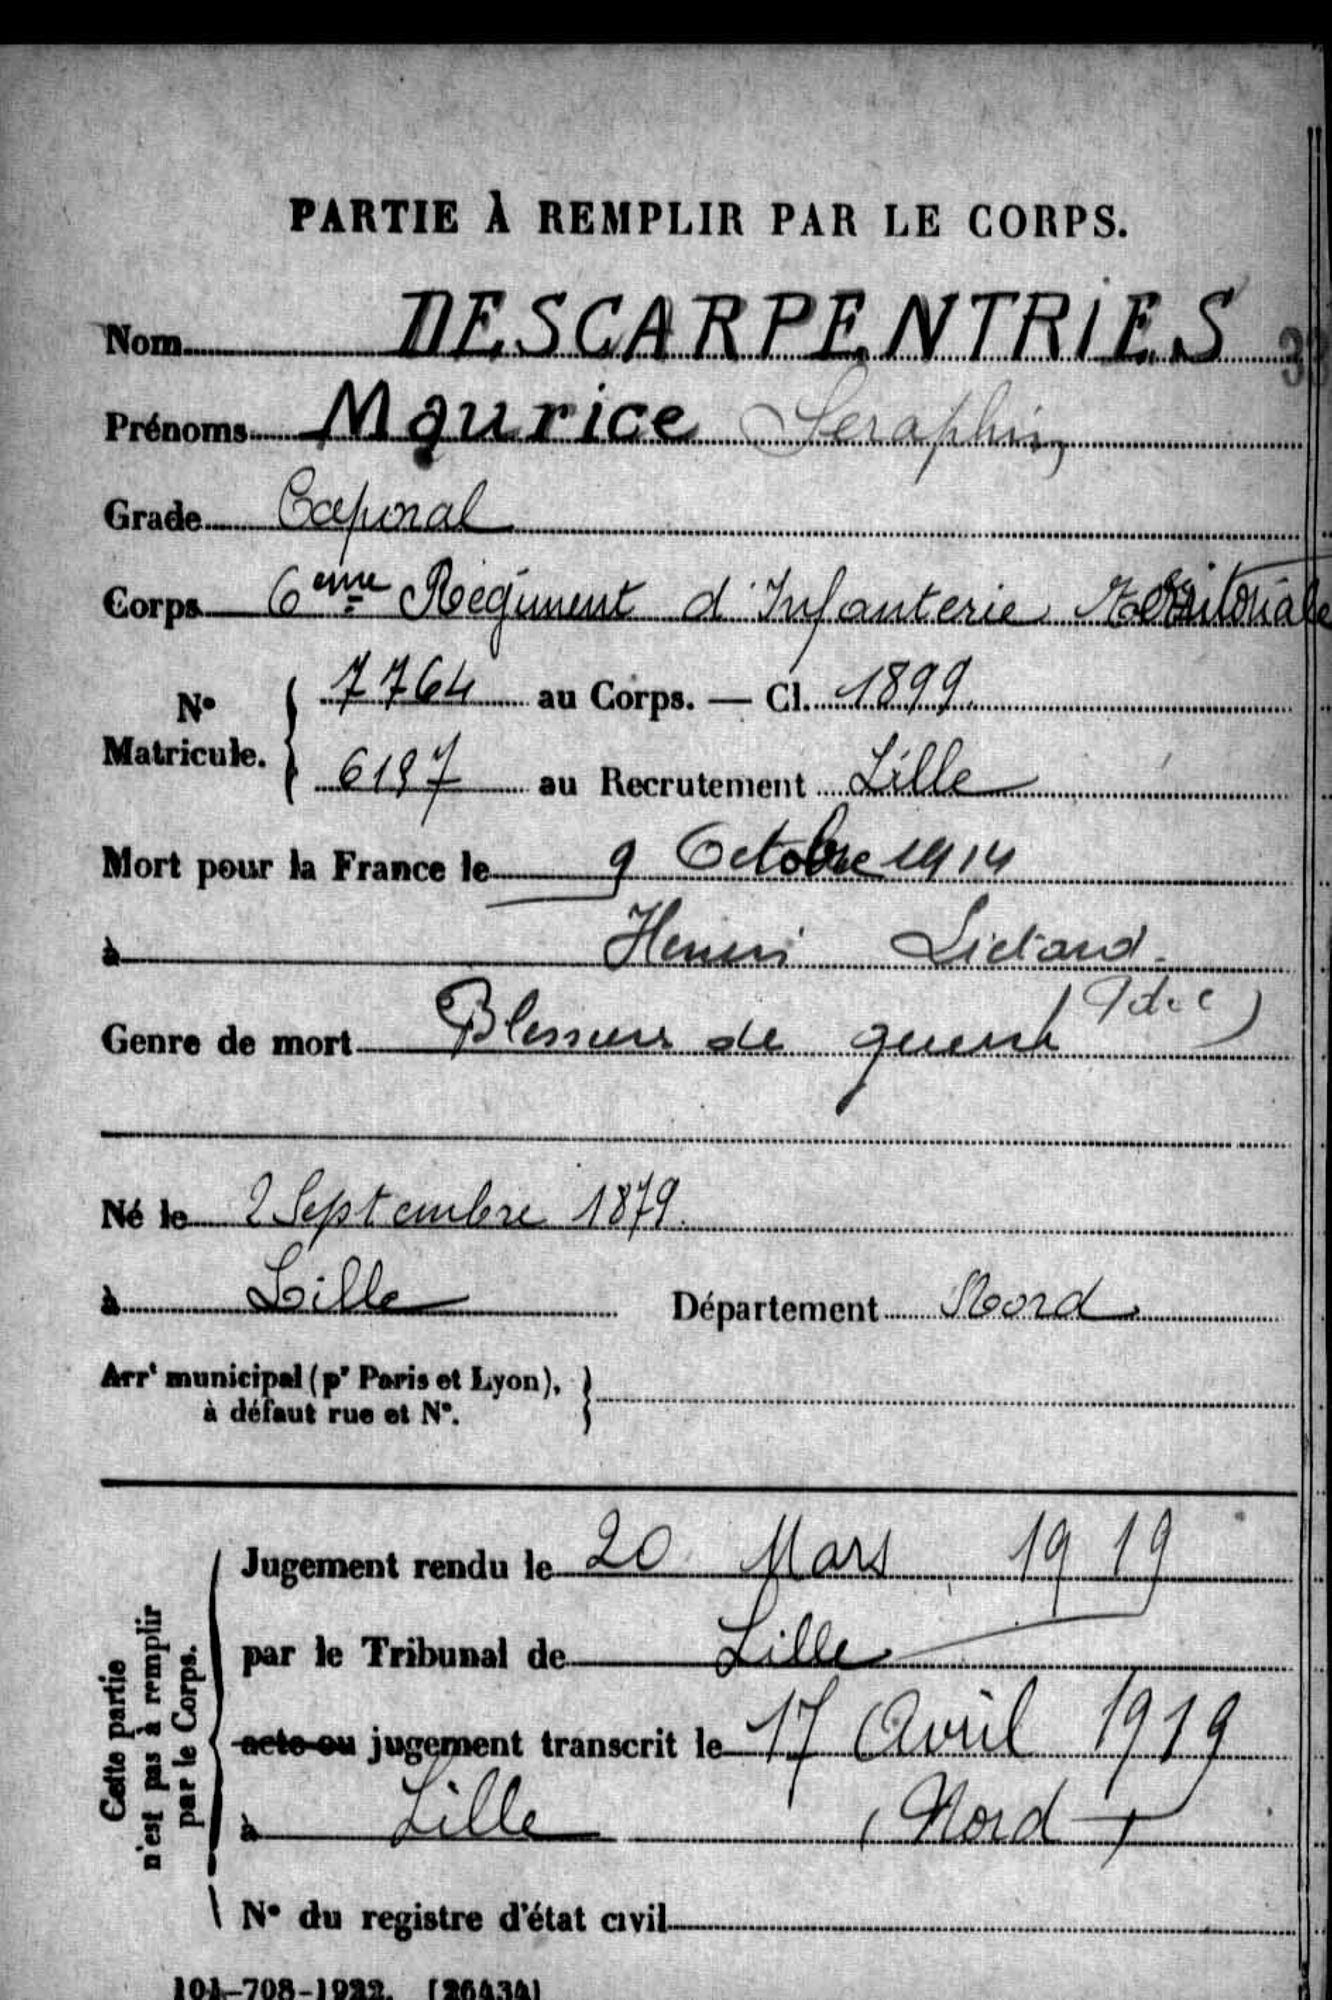 PARTIE À REMPLIR PAR LE CORPS.
Nom DESCARPENTRIES
Prénoms Maurice Seraphin
Grade Caporal
Corps 6eme Régiment d'Infanterie Territoriale
N° Matricule. { 7764 au Corps. — Cl. 1899
6197 au Recrutement Lille
Mort pour la France le 9 Octobre 1914
à Henin Lietard
(P de C)
Genre de mort Blessures de guerre
Né le 2 Septembre 1879.
à Lille Département Nord
Arrt municipal (pr Paris et Lyon), }
à défaut rue et N°.
Cette partie
n'est pas à remplir
par le Corps.
Jugement rendu le 20 Mars 1919
par le Tribunal de Lille
acte ou jugement transcrit le 17 Avril 1919
à Lille (Nord)
N° du registre d'état civil
101-708-1922. [26434]